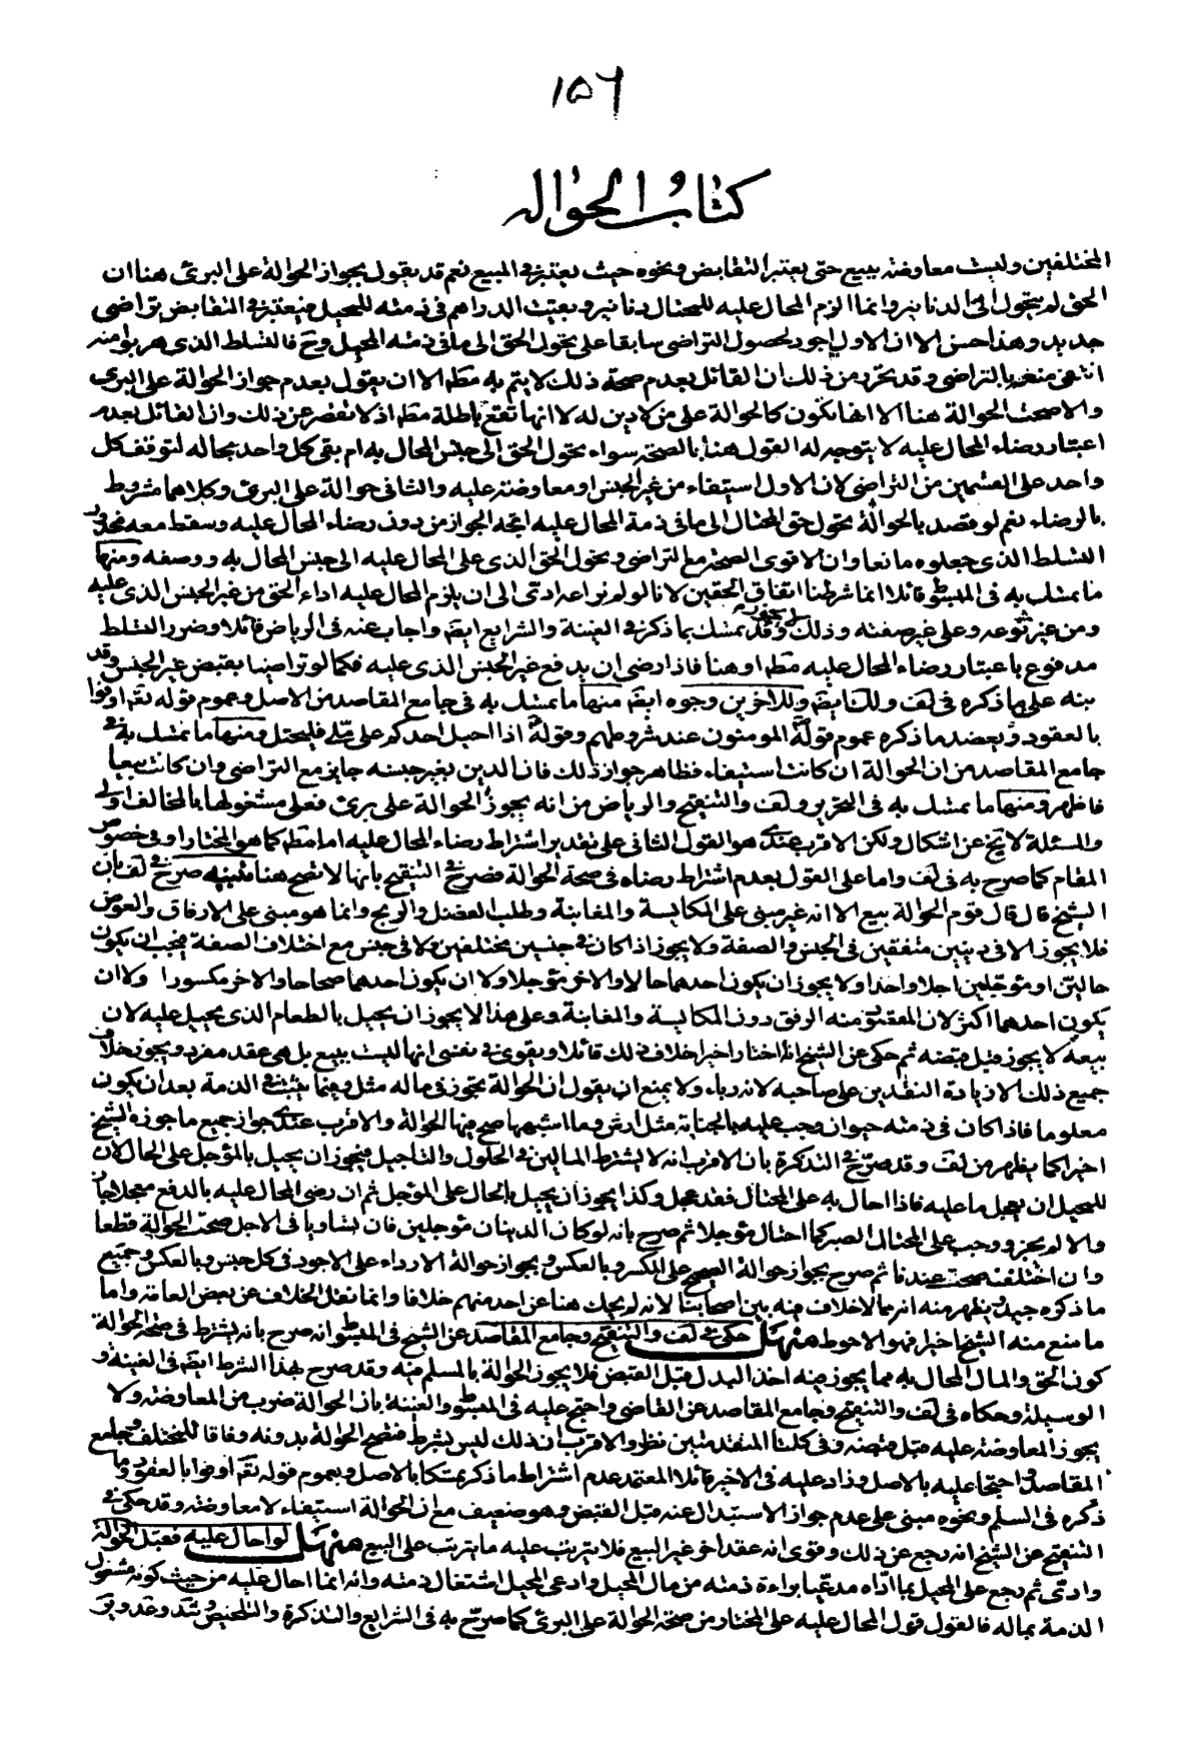 ١٥٦
كتاب الحواله
المختلفين وليست معاوضة ببيع حتى يعتبر التقابض ونحوه حيث يعتبر في المبيع نعم قد يقول بجواز الحوالة على البرئ هنا ان
الحق لم يتحول الى الدنانير وانما الزم المحال عليه للمحتال دنانير وبقيت الدراهم في ذمته للمحيل فيعتبر في التقابض تراضى
جديد وهذا حسن الا ان الاول اجود لحصول التراضى سابقا على تحول الحق الى ما في ذمته المحيل وح فالتسلط الذى هربوا منه
انتفى منعه بالتراضى وقد تحرر من ذلك ان القائل بعدم صحة ذلك لا يتم به مطم الا ان يقول بعدم جواز الحوالة على البرى
والا صحت الحوالة هنا الا انها تكون كالحوالة على من لا دين له لا انها تقع باطلة مطم اذ لا تقصر عن ذلك وان القائل بعدم
اعتبار رضاء المحال عليه لا يتوجه له القول هنا بالصحة سواء تحول الحق الى جنس المحال به ام بقى كل واحد بحاله لتوقف كل
واحد على القسمين من التراضى لان الاول استيفاء من غير الجنس او معاوضة عليه والثانى حوالة على البرى وكلاهما مشروط
بالرضاء نعم لو قصد بالحوالة تحول حق المحتال الى ما في ذمة المحال عليه اتجه الجواز من دون رضاء المحال عليه وسقط معه محذور
التسلط الذى جعلوه مانعا وان الاقوى الصحة مع التراضى وتحول الحق الذى على المحال عليه الى جنس المحال به ووصفه ومنها
ما تمسك به في المبسوط قائلا انما شرطنا اتفاق الحقين لانا لو لم نراعه ادى الى ان يلزم المحال عليه اداء الحق من غير الجنس الذى عليه
ومن غير نوعه وعلى غير صفته وذلك لا يجوز وقد تمسك بما ذكر في الغنية والشرايع ايضم واجاب عنه في الرياض قائلا وضرر التسلط
مدفوع باعتبار رضاء المحال عليه مطم او هنا فاذا رضى ان يدفع غير الجنس الذى عليه فكما لو تراضيا بقبض غير الجنس وقد
نبه على ما ذكره في لف ولك ايضم وللاخرين وجوه ايضم منها ما تمسك به في جامع المقاصد من الاصل وعموم قوله تعم اوفوا
بالعقود ويعضد ما ذكره عموم قوله المومنون عند شروطهم وقوله اذا احيل احدكم على ملى فليحتل ومنها ما تمسك به في
جامع المقاصد من ان الحوالة ان كانت استيفاء فظاهر جواز ذلك فان الدين بغير جنسه جايز مع التراضى وان كانت بيعا
فاظهر ومنها ما تمسك به في التحرير ولف والتنقيح والرياض من انه يجوز الحوالة على برئ فعلى مشغولها بالمخالف اولى
والمسئلة لا تخ عن اشكال ولكن الاقرب عندى هو القول الثانى على تقدير اشتراط رضاء المحال عليه اما مطم كما هو المختار او في خصوص
المقام كما صرح به في لف واما على القول بعدم اشتراط رضاه في صحة الحوالة فصرح في التنقيح بانها لا تصح هنا تنبيه صرح في لف بان
الشيخ قال قال قوم الحوالة بيع الا انه غير مبنى على المكايسة والمغابنة وطلب الفضل والربح وانما هو مبنى على الارفاق والعوض
فلا يجوز الا في دينين متفقين في الجنس والصفة ولا يجوز اذا كان في جنسين مختلفين ولا في جنس مع اختلاف الصفة فيجب ان يكون
حالين او مؤجلين اجلا واحدا ولا يجوز ان يكون احدهما حالا والاخر مؤجلا ولا ان يكون احدهما صحاحا والاخر مكسورا ولا ان
يكون احدهما اكثر لان المقصود منه الرفق دون المكايسة والمغابنة وعلى هذا لا يجوز ان يحيل بالطعام الذى يحيل عليه لان
بيعه لا يجوز قبل قبضه ثم حكى عن الشيخ انه اختار اخيرا خلاف ذلك قائلا ويقوى في نفسى انها ليست ببيع بل هى عقد مفرد ويجوز خلاف
جميع ذلك الا زيادة النقدين على صاحبه لانه رباء ولا يمنع ان يقول ان الحوالة تجوز في ماله مثل وفيما يثبت في الذمة بعد ان يكون
معلوما فاذا كان في ذمته حيوان وجب عليه بالجناية مثل ارش وما اشبهها صح فيها الحوالة والاقرب عندى جواز جميع ما جوزه الشيخ
اخيرا كما يظهر من لف وقد صرح في التذكرة بان الاقرب انه لا يشترط المالين في الحلول والتاجيل فيجوز ان يحيل بالمؤجل على الحال لان
للمحيل ان يعجل ما عليه فاذا احال به على المحتال فقد عجل وكذا يجوز ان يحيل بالحال على المؤجل ثم ان رضى المحال عليه بالدفع معجلا جاز
والا لم يجز ووجب على المحتال الصبر كما احتال مؤجلا ثم صرح بانه لو كان الدينان مؤجلين فان تساويا في الاجل صحت الحوالة قطعا
وان اختلفت صحت عندنا ثم صرح بجواز حوالة الصحيح على المكسر وبالعكس وبجواز حوالة الارداء على الاجود في كل جنس وبالعكس وجميع
ما ذكره جيد ويظهر منه انه مما لا خلاف فيه بين اصحابنا لانه لم يحك هنا عن احد منهم خلافا وانما نقل الخلاف عن بعض العامة واما
ما منع منه الشيخ اخيرا فهو الاحوط منهل حكى في لف والتنقيح وجامع المقاصد عن الشيخ في المبسوط انه صرح بانه يشترط في صحة الحوالة
كون الحق والمال المحال به مما يجوز فيه اخذ البدل قبل القبض فلا يجوز الحوالة بالمسلم فيه وقد صرح بهذا الشرط ايضم في الغينة و
الوسيلة وحكاه في لف والتنقيح وجامع المقاصد عن القاضى واحتج عليه في المبسوط والغنية بان الحوالة ضرب من المعاوضة ولا
يجوز المعاوضة عليه قبل قبضه وفي كلتا المقدمتين نظر والاقرب ان ذلك ليس بشرط فتصح الحوالة بدونه وفاقا للمختلف وجامع
المقاصد واحتجا عليه بالاصل وزاد عليه في الاخير قائلا المعتمد عدم اشتراط ما ذكر تمسكا بالاصل وبعموم قوله تعم اوفوا بالعقود وما
ذكره في السلم ونحوه مبنى على عدم جواز الاستبدال عنه قبل القبض وهو ضعيف مع ان الحوالة استيفاء لا معاوضة وقد حكى في
التنقيح عن الشيخ انه رجع عن ذلك وقوى انه عقد اخر غير البيع فلا يترتب عليه ما يترتب على البيع منهل لو احال عليه فقبل الحوالة
وادى ثم رجع على المحيل بما اداه مدعيا براءة ذمته من مال المحيل وادعى المحيل اشتغال ذمته وانه انما احال عليه من حيث كونه مشغول
الذمة بماله فالقول قول المحال عليه على المختار من صحة الحوالة على البرئ كما صرح به في الشرايع والتذكرة والتلخيص وشد وعد وير